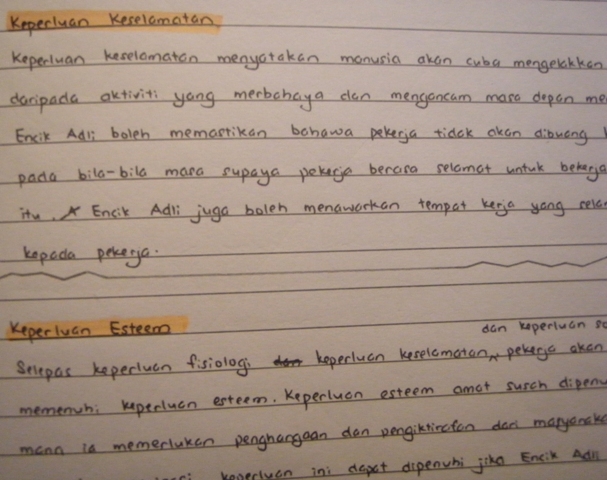 Keperluan Keselamatan
Keperluan keselamatan menyatakan manusia akan cuba mengelakkan
daripada aktiviti yang merbahaya dan mengancam masa depan me
Encik Adli boleh memastikan bahawa pekerja tidak akan dibuang
pada bila-bila masa supaya pekerja berasa selamat untuk bekerja
itu. Encik Adli juga boleh menawarkan tempat kerja yang sela
kepada pekerja.
Keperluan Esteem
dan keperluan so
Selepas keperluan fisiologi dan keperluan keselamatan, pekerja akan
memenuhi keperluan esteem. Keperluan esteem amat susah dipenu
mana ia memerlukan penghargaan dan pengiktirafan dari masyaraka
keperluan ini dapat dipenuhi jika Encik Adli